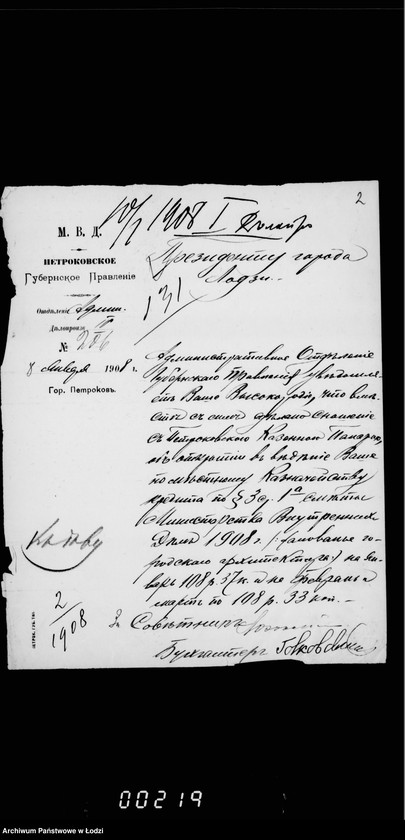 2
10/I 1908 I
М. В. Д.
ПЕТРОКОВСКОЕ
Губернское Правленіе
Отдѣленіе Админ.
Дѣлопроизв.
№ 206
8 Января 1908 г.
Гор. Петроковъ.
Президенту города
Лодзи.
131
Административное Отдѣленіе
Губернскаго Правленія увѣдомля-
етъ Ваше Высокородіе, что вмѣ-
стѣ съ симъ сдѣлано сношеніе
съ Петроковской Казенной Палатой
объ открытіи въ вѣдѣніе Ваше
по мѣстному Казначейству
кредита по § 3 ст. 1 смѣты
Министерства Внутреннихъ
Дѣлъ 1908 г. /: жалованье го-
родскаго архитектора :/ на Ян-
варь 108 р. 37 к. и на Февраль и
мартъ по 108 р. 33 коп. —
Къ дѣлу
2/1908
За Совѣтника
Бухгалтеръ
00219
Archiwum Państwowe w Łodzi